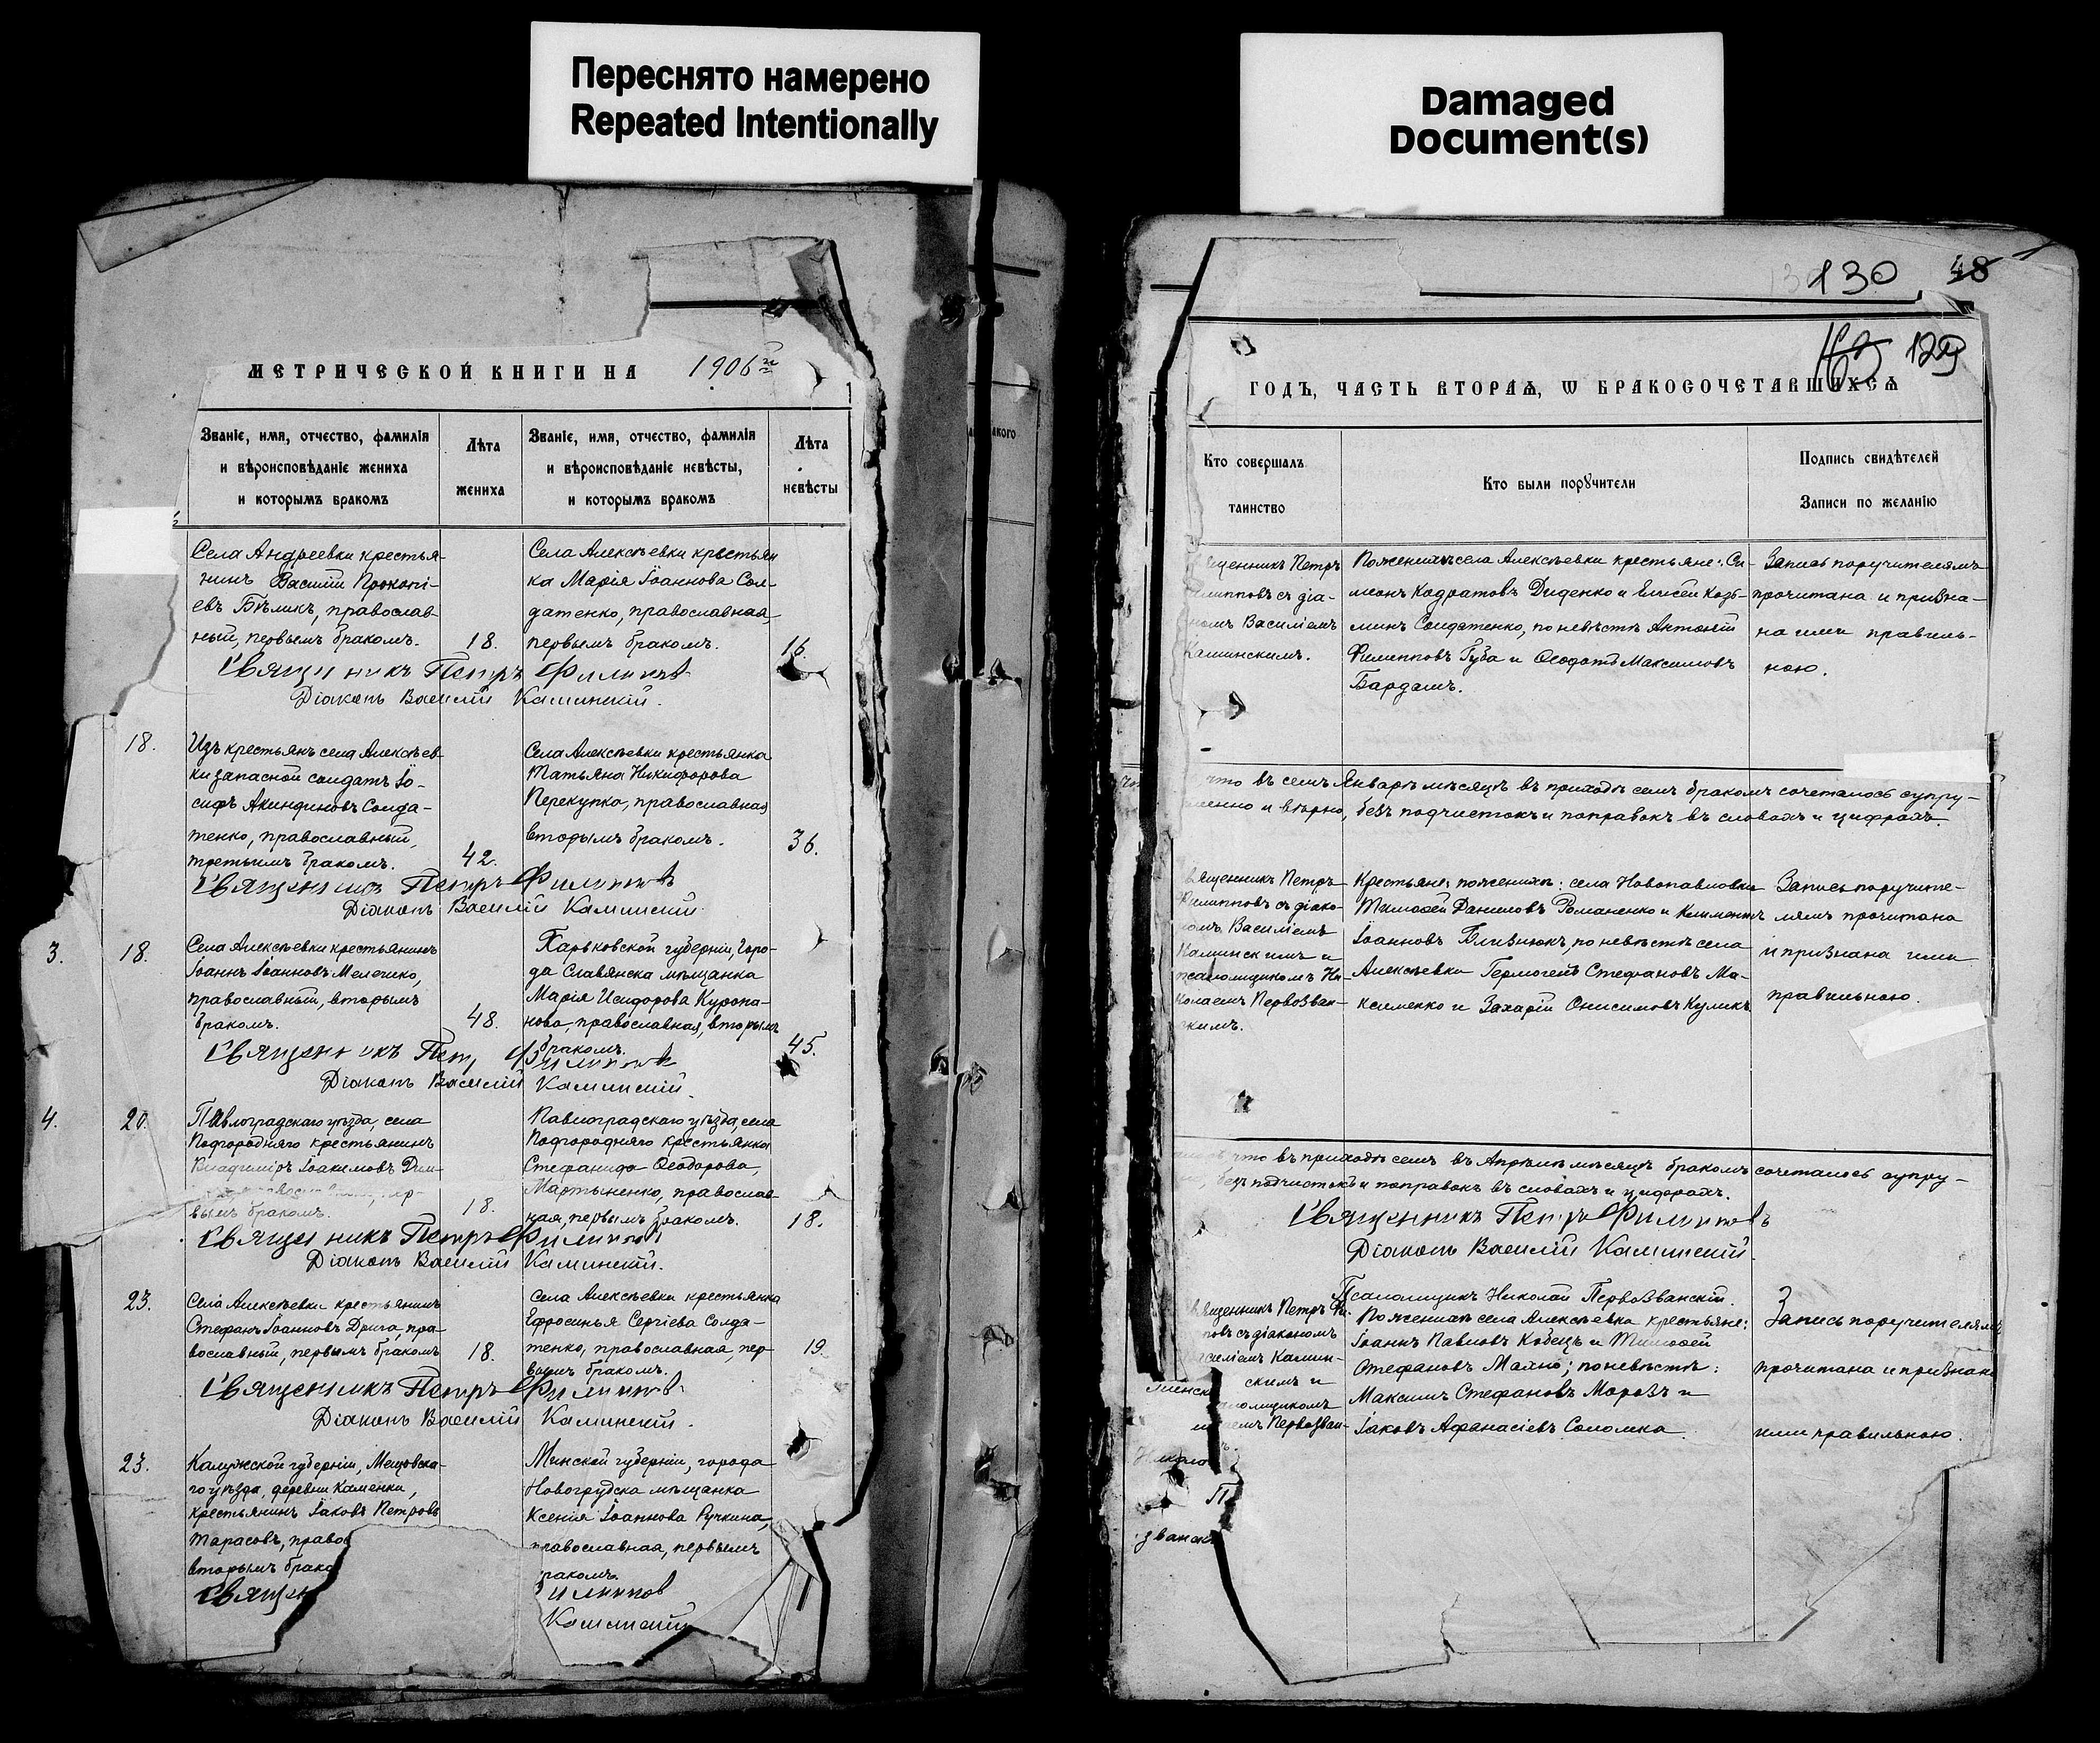 Переснято намерено
Repeated Intentionally
Damaged
Document(s)
МЕТРИЧЕСКОЙ КНИГИ НА 1906
Званіе, имя, отчество, фамилія
и вѣроисповѣданіе жениха
и которымъ бракомъ
Лѣта
жениха
Званіе, имя, отчество, фамилія
и вѣроисповѣданіе невѣсты,
и которымъ бракомъ
Лѣта
невѣсты
Села Андреевки крестья-
нинъ Василій Прокопі-
евъ Бѣликъ, православ-
ный, первымъ бракомъ.
18.
Села Алексѣевки крестьян
ка Марія Іоаннова Сол-
датенко, православная,
первымъ бракомъ.
16.
Священникъ Петръ Филиповъ
Діаконъ Василій Каминскій.
18.
Изъ крестьянъ села Алексѣев-
ки запасной солдатъ Іо-
сифъ Акиндиновъ Солда-
тенко, православный,
третьимъ бракомъ.
42.
Села Алексѣевки крестьянка
Татьяна Никифорова
Перекупко, православная
вторымъ бракомъ.
36.
Священникъ Петръ Филиповъ
Діаконъ Василій Каминскій
3.
18.
Села Алексѣевки крестьянинъ
Іоаннъ Іоанновъ
православный, вторымъ
бракомъ.
48.
Харьковской губерніи, горо-
да Славянска мѣщанка
Марія Исидорова Куропа-
нова, православная, вторымъ
бракомъ.
45.
Священникъ Петръ Филиповъ
Діаконъ Василій Каминскій.
4.
20.
Павлоградскаго уѣзда, села
Подгородняго крестьянинъ
Владиміръ Іоакимовъ
вымъ бракомъ.
18.
Павлоградскаго уѣзда, села
Подгородняго крестьянка
Стефанида Ѳеодорова,
Мартыненко, православ-
ная, первымъ бракомъ.
18.
Священникъ Петръ Филиповъ
Діаконъ Василій Каминскій.
23.
Села Алексѣевки крестьянинъ
Стефанъ Іоанновъ Дрига, пра-
вославный, первымъ бракомъ
18.
Села Алексѣевки крестьянка
Ефросинья Сергіева Солда-
тенко, православная, пер-
вымъ бракомъ.
19.
Священникъ Петръ Филиповъ
Діаконъ Василій Каминскій.
23.
Калужской губерніи, Мещовска-
го уѣзда, деревни Каменки,
крестьянинъ Іаковъ Петровъ
Тарасовъ, право
вторымъ брако
Минской губерніи, города
Новогрудска мѣщанка
Ксенія Іоаннова Ручкина,
православная, первымъ
ракомъ.
Священ
илипов
Каминскій
130 48
129
ГОДЪ, ЧАСТЬ ВТОРАѦ, Ѡ БРАКОСОЧЕТАВШИХСѦ
Кто совершалъ
таинство
Кто были порꙋчители
Подпись свидѣтелей
Записи по желанію
щенникъ Петръ
липповъ съ діа-
номъ Василіемъ
Каминскимъ.
По женихѣ села Алексѣевки крестьяне: Си-
меонъ Кодратовъ Диденко и Елисей Козь-
минъ Солдатенко, по невѣстѣ Антоній
Филипповъ Губа и Ѳеодотъ Максимовъ
Бардашъ.
Запись поручителямъ
прочитана и призна-
на ими правиль-
ною.
что въ семъ Январѣ мѣсяцѣ въ приходѣ семъ бракомъ сочеталось супру-
менно и вѣрно, безъ подчистокъ и поправокъ въ словахъ и цифрахъ.
Священникъ Петръ
Филипповъ съ діако-
номъ Василіемъ
Каминскимъ и
псаломщикомъ Ни-
колаемъ Первозван-
скимъ.
Крестьяне: по женихѣ: села Новопавловки
Тимоѳей Даниловъ Романенко и Климентъ
Іоанновъ Близнюкъ, по невѣстѣ села
Алексѣевки Гермогенъ Стефановъ Ма-
ксименко и Захарій Онисимовъ Куликъ
Запись поручите-
лямъ прочитана
и признана ими
правильною.
что въ приходѣ семъ въ Апрѣлѣ мѣсяцѣ бракомъ сочеталось супру-
безъ подчистокъ и поправокъ въ словахъ и цифрахъ.
Священникъ Петръ Филиповъ
Діаконъ Василій Каминскій.
Псаломщикъ Николай Первозванскій.
Священникъ Петръ Фи-
повъ съ діакономъ
силіемъ Камин-
скимъ и
ломщикомъ
емъ Первозван-
По женихѣ села Алексѣевка крестьяне:
Іоаннъ Павловъ Кобецъ и Тимоѳей
Стефановъ Махно; по невѣстѣ:
Максимъ Стефановъ Морозъ и
Іаковъ Аѳанасіевъ Соломка.
Запись поручителямъ
прочитана и признана
ими правильною.
званск